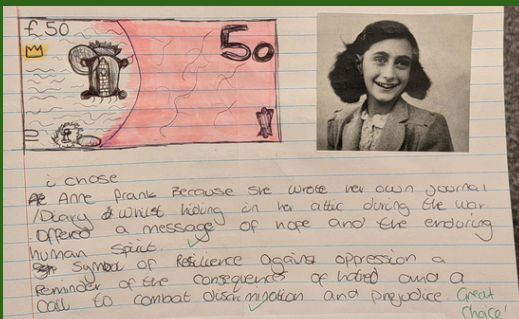 £50
50
i chose
Anne Frank Because she wrote her own Journal
/Diary & whilst hiding in her attic during the war.
offered a message of hope and the enduring
human spirit.
Symbol of Resilience Against oppression a
Reminder of the consequences of hatred and a
Call to combat discrimination and prejudice. Great
Choice!